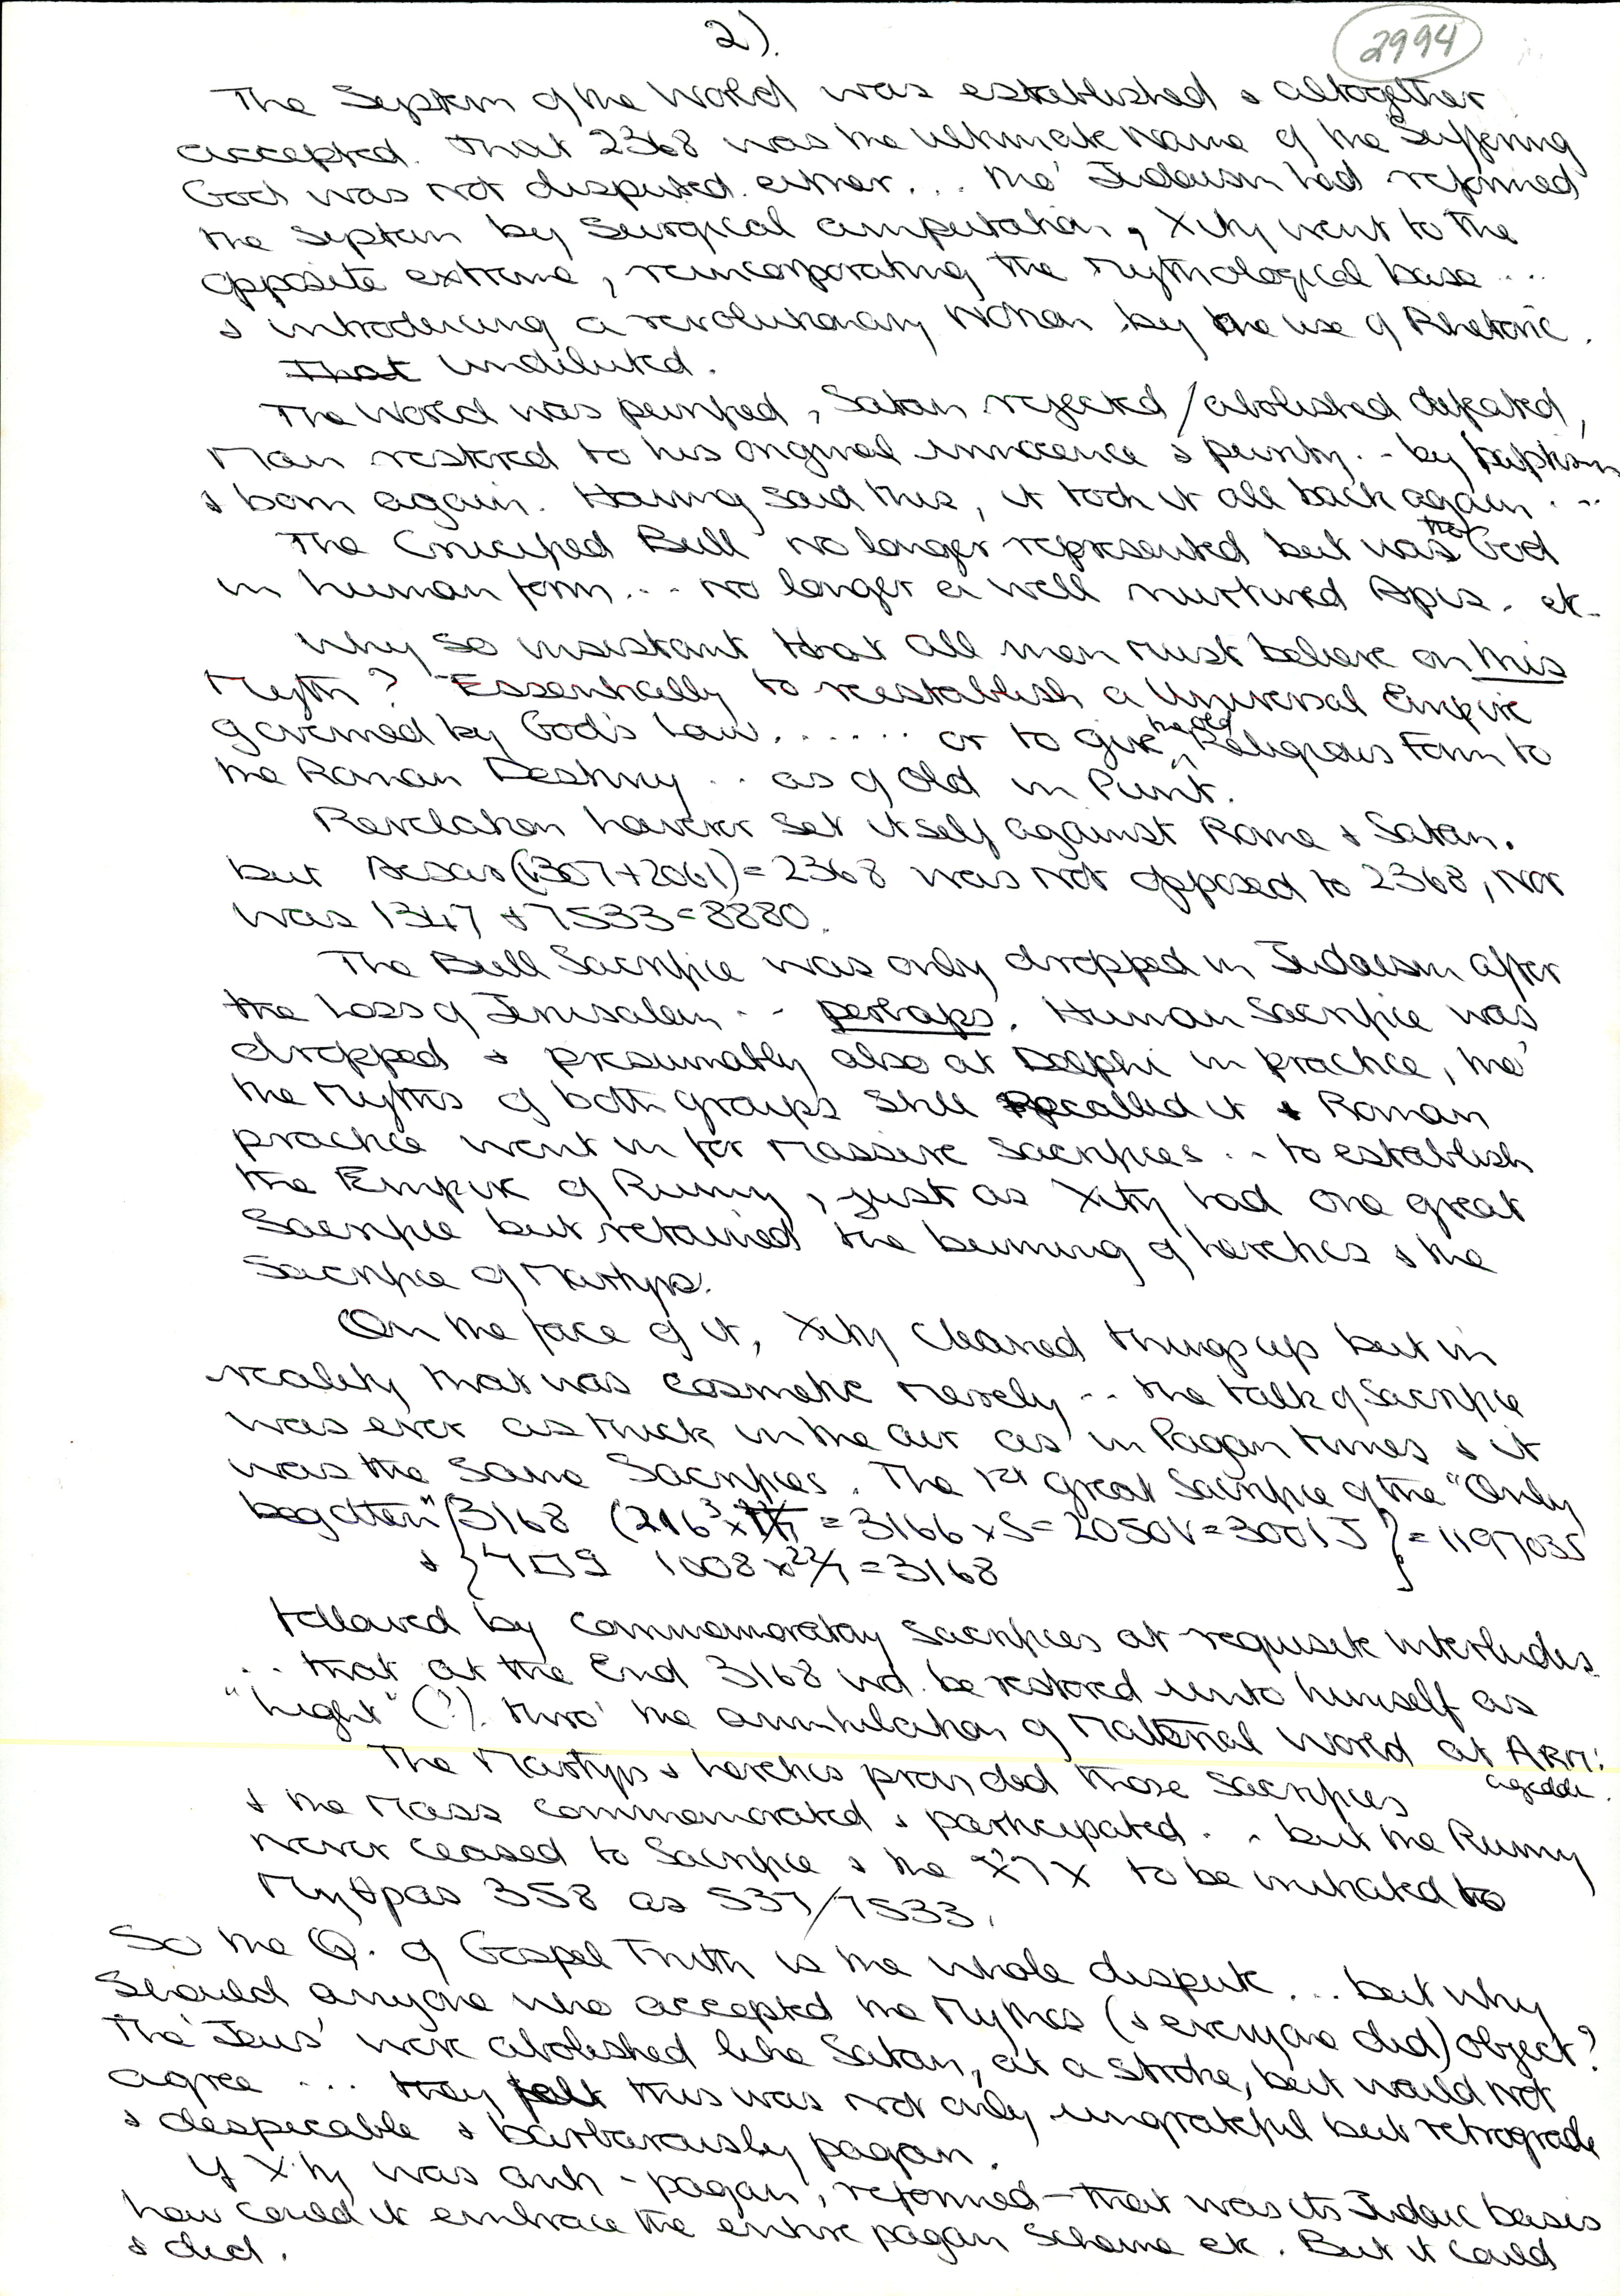 2).
2994
The System of the World was established & altogether
accepted. That 2368 was the Ultimate Name of the Suffering
God was not disputed. either... tho' Judaism had reformed
the system by Surgical amputation, Xity went to the
opposite extreme, reincorporating the mythological base ...
& introducing a revolutionary Notion by the use of Rhetoric.
That undiluted.
The World was purified, Satan rejected / abolished defeated,
Man restored to his original innocence & purity.. by baptism
& born again. Having said this, it took it all back again ...
The Crucified Bull no longer represented but was the God
in human form... no longer a well nurtured Apis. etc.
Why so insistant that all men must believe on this
Myth? Essentially to reestablish a Universal Empire
governed by God's Law....... or to give the old Religious Form to
the Roman Destiny .. as of Old in Punt.
Revelation however set itself against Rome & Satan.
but (307+2061)=2368 was not opposed to 2368, nor
was 1347 + 7533=8880.
The Bull Sacrifice was only dropped in Judaism after
the Loss of Jerusalem .. perhaps. Human Sacrifice was
dropped & presumably also at Delphi in practice, tho'
the Myths of both groups still recalled it & Roman
practice went in for Massive Sacrifices .. to establish
the Empire of Rumy, just as Xity had one great
Sacrifice but retained the burning of heretics & the
Sacrifice of Martyrs.
On the face of it, Xity cleaned things up but in
reality that was cosmetic merely .. the talk of Sacrifice
was ever as thick in the air as in Pagan times & it
was the Same Sacrifices. The 1st great Sacrifice of the "Only
begotten" 3168 (216³ x = 3166 x S = 2050V = 3001J } = 1197035
& { 4□9 1008 x 22/7 = 3168
followed by commemoratory sacrifices at requisite interludes
.. that at the End 3168 wd. be restored unto himself as
"Light" (?). thro' the annihilation of Material World at ARM:
ageddi.
The Martyrs & heretics provided those Sacrifices
& the Mass commemorated & participated. .. but the Rumy
never ceased to Sacrifice & the to be initiated to
358 as 537/7533.
So the Q. of Gospel Truth is the whole dispute... but why
should anyone who accepted the Mythos (& everyone did) object?
The 'Jews' were abolished like Satan, at a stroke, but would not
agree ... they felt this was not only ungrateful but retrograde
& despicable & barbarously pagan.
If Xity was anti-pagan, reformed - that was its Judaic basis
how could it embrace the entire pagan Scheme etc. But it could
& did.